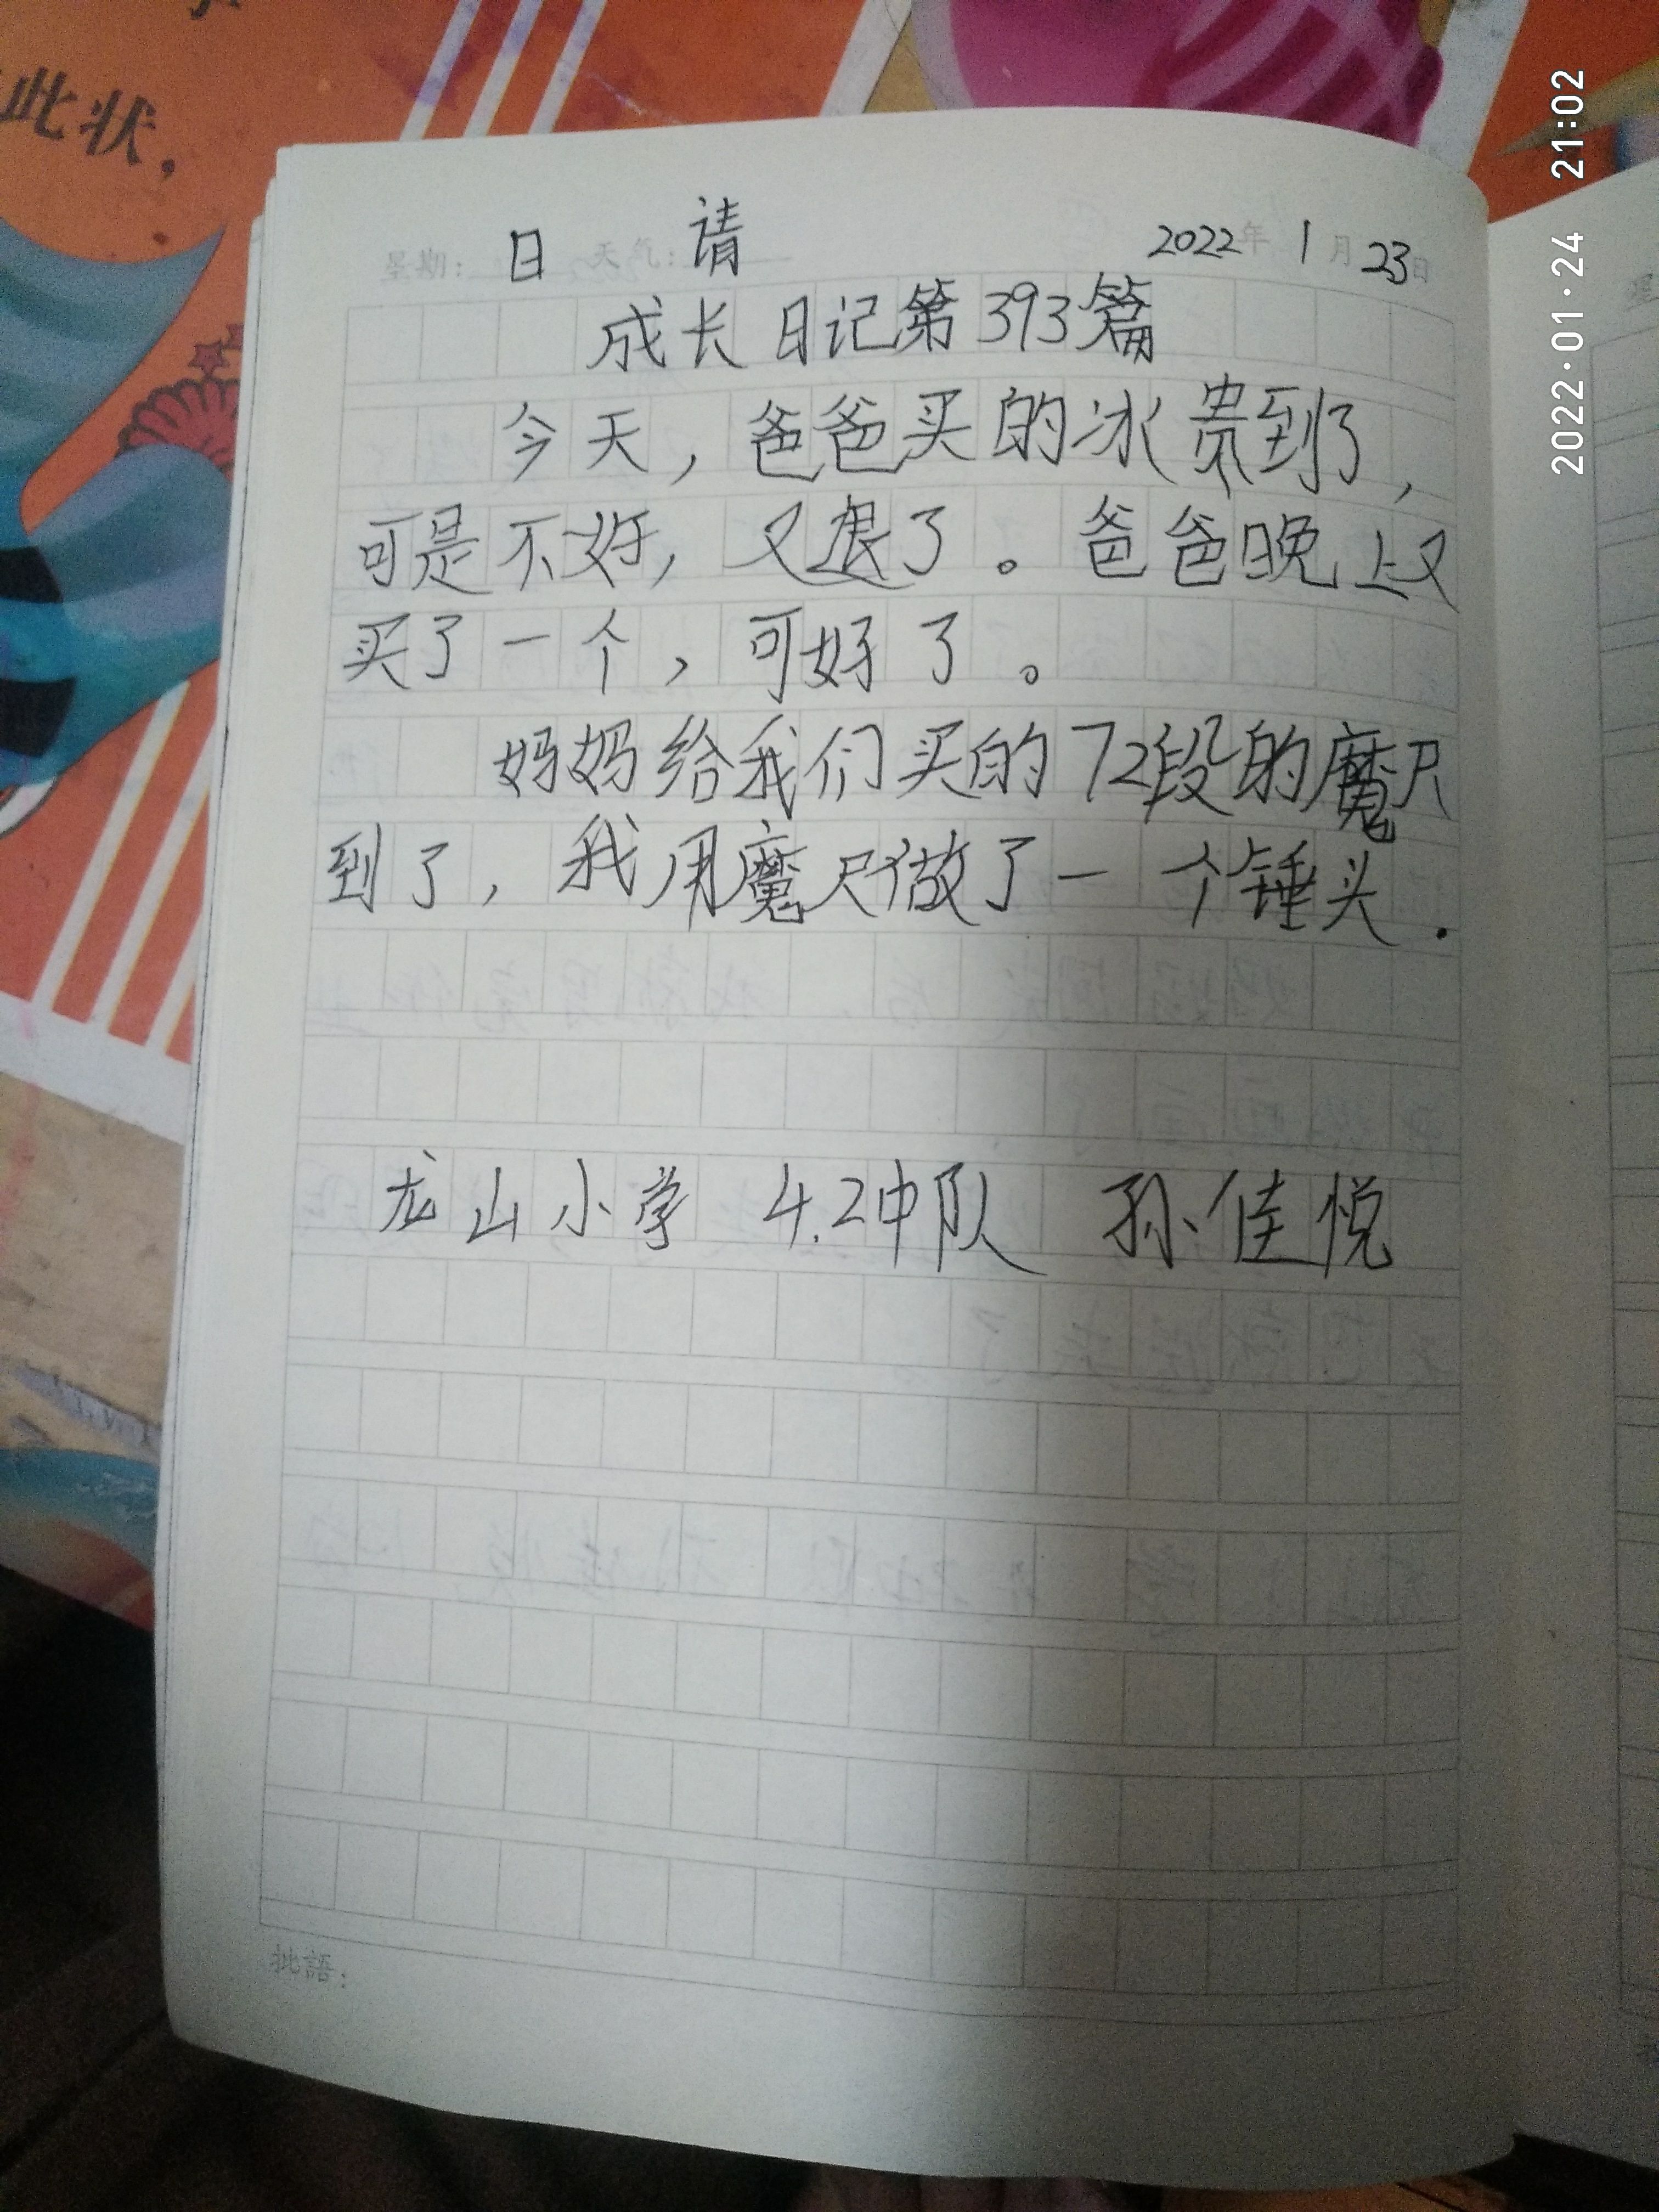 此状，
2022·01·24 21:02
星期： 日 天气： 请 2022年 1月 23日
成长日记第393篇
今天，爸爸买的冰贵到了，
可是不好，又退了。爸爸晚上又
买了一个，可好了。
妈妈给我们买的72段的魔尺
到了，我用魔尺做了一个锤头.
龙山小学 4.2中队 孙佳悦
批語：